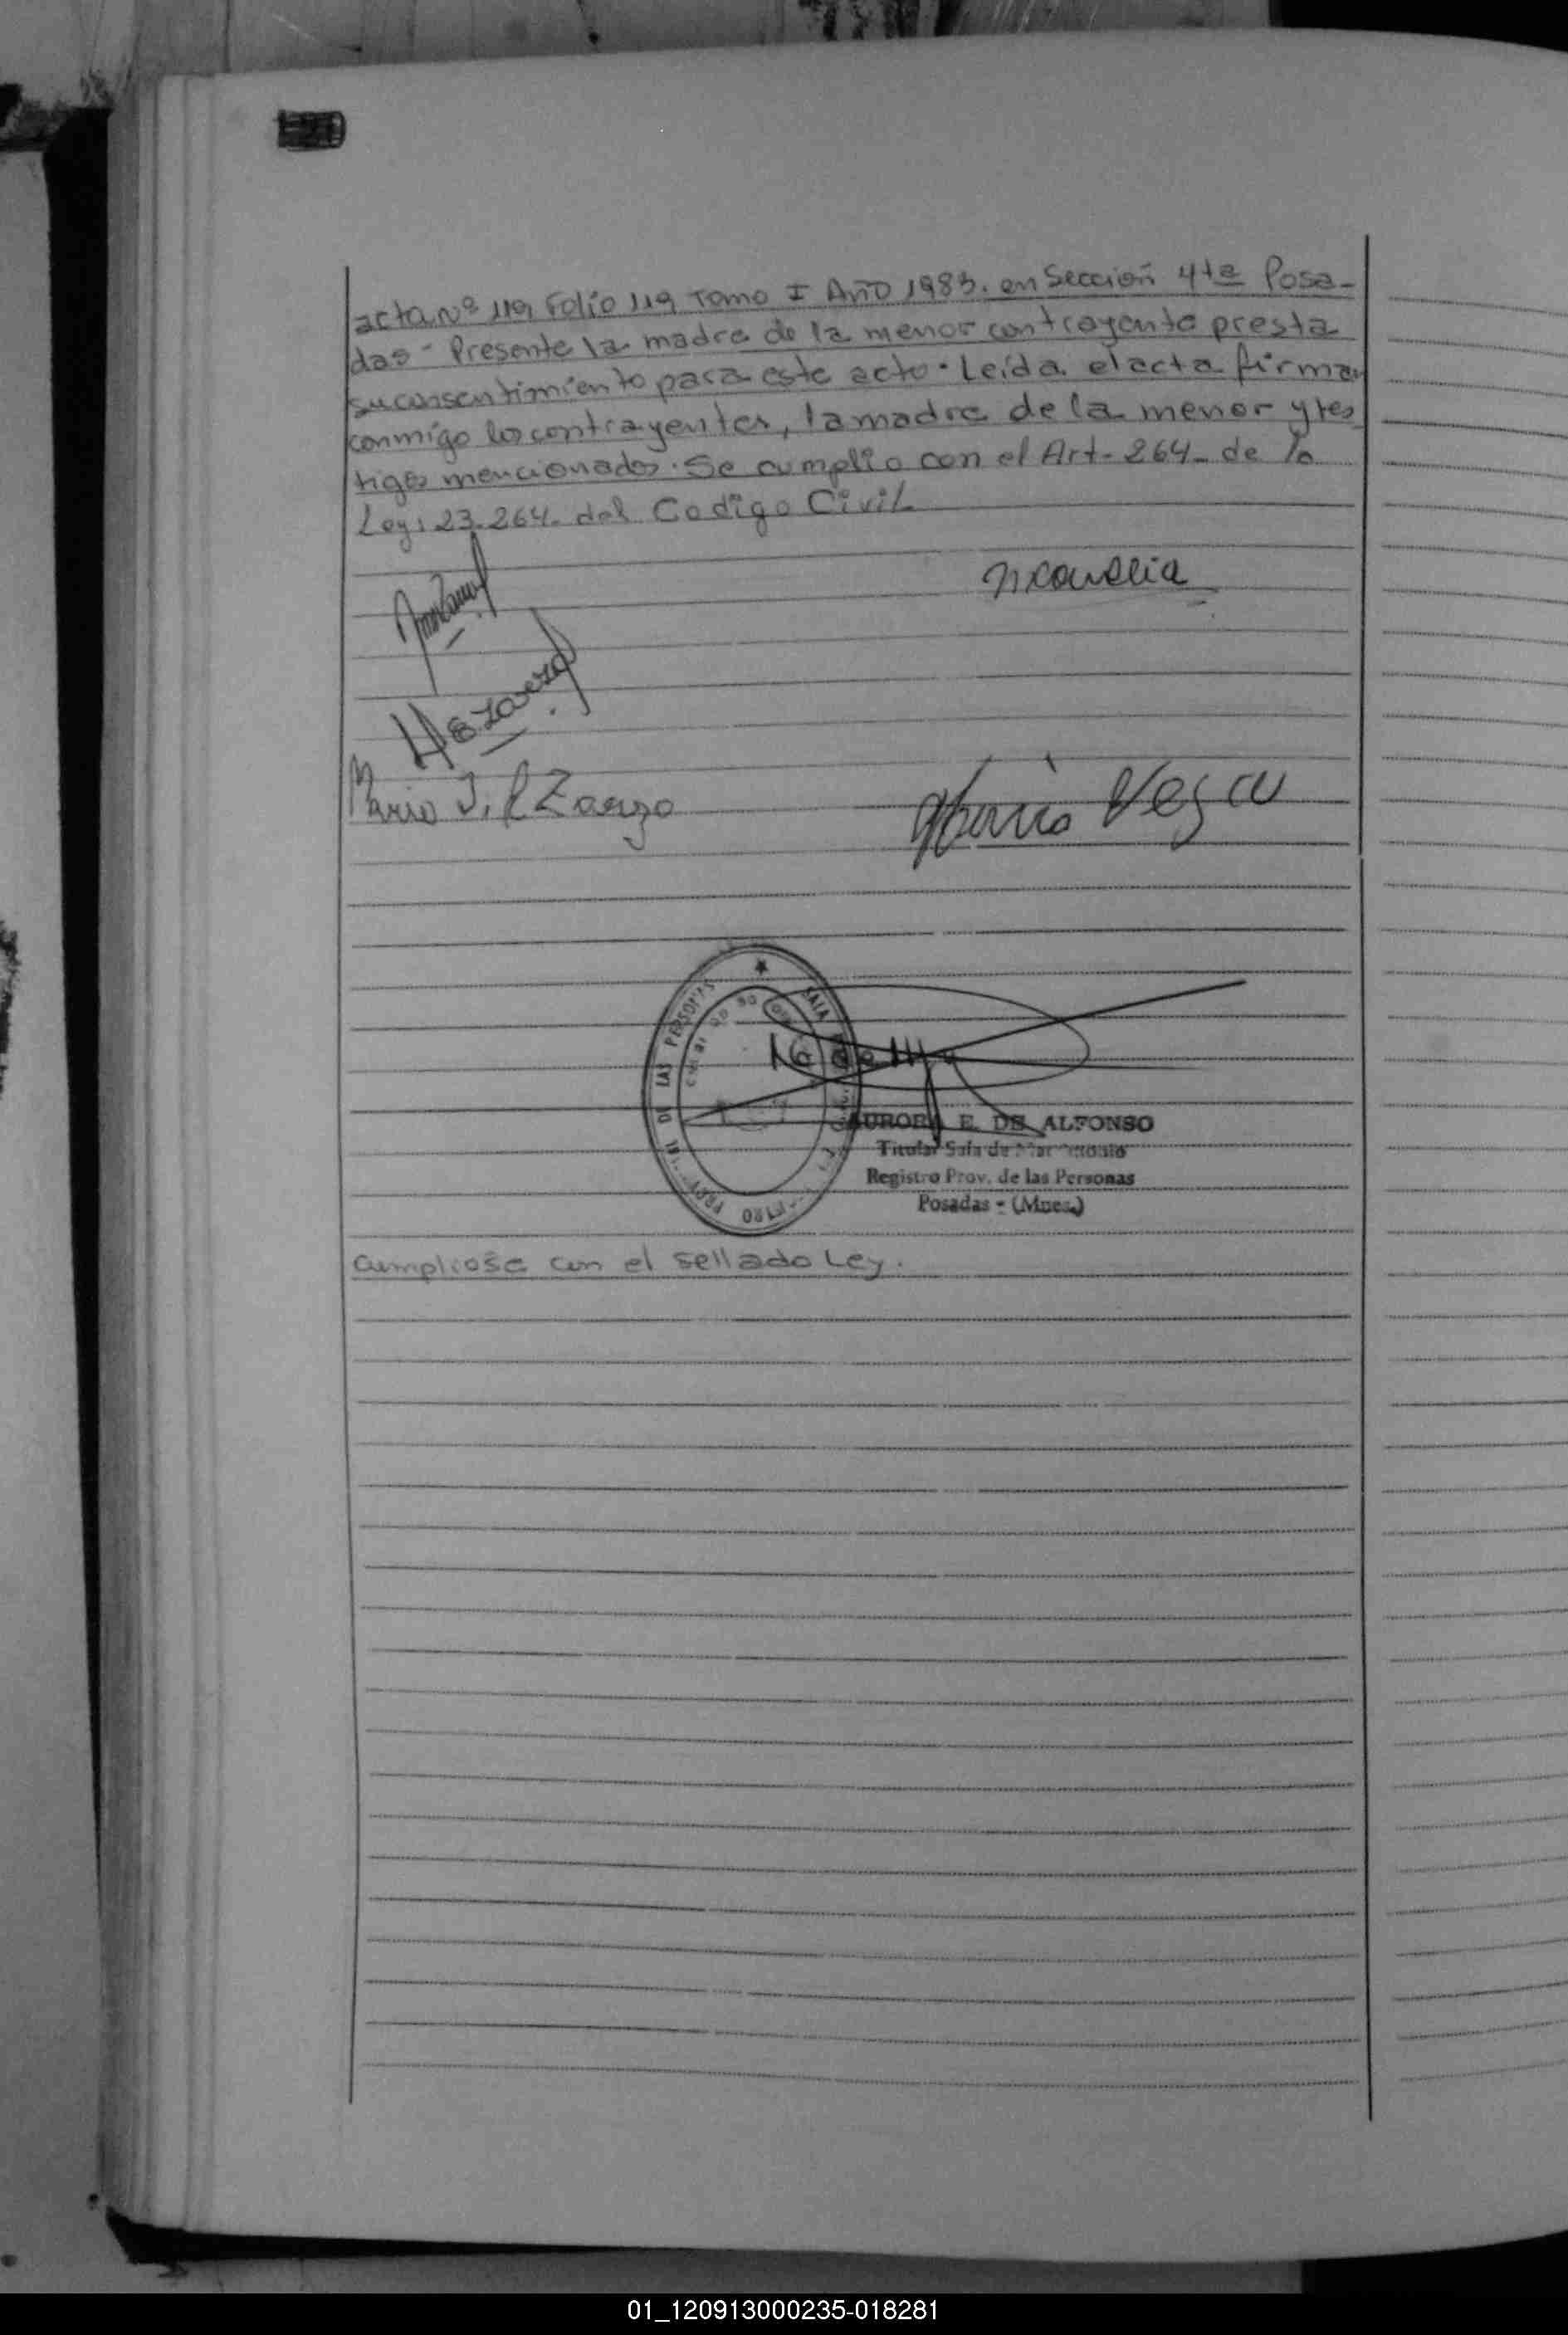 acta Nº 119, Folio 119 Tomo I Año 1983. en Sección 4ta Posa-
das - Presente la madre de la menor contrayente presta
su consentimiento para este acto. Leída el acta firman
conmigo los contrayentes, la madre de la menor y tes
tigos mencionados. Se cumplio con el Art. 264 - de la
Ley: 23.264. del Codigo Civil
Mario J. Zarzo
Vega
★ SALA
DE LAS PERSONAS
AURORA E. DE ALFONSO
Titular Sala de Matrimonio
Registro Prov. de las Personas
Posadas - (Mnes.)
Cumpliose con el sellado Ley.
01_120913000235-018281